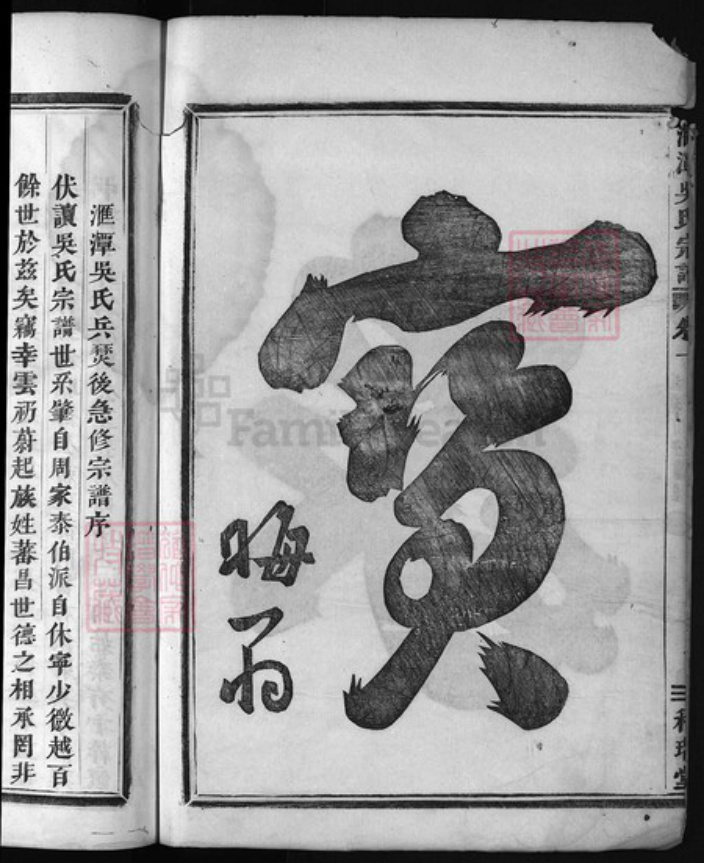 滙潭吳氏宗譜
卷一
三
程瑞堂
寶
晦翁
滙潭吳氏兵燹後急修宗譜序
伏讀吳氏宗譜世系肇自周家泰伯派自休寧少微越百
餘世於茲矣竊幸雲礽蔚起族姓蕃昌世德之相承罔非
FamilySearch